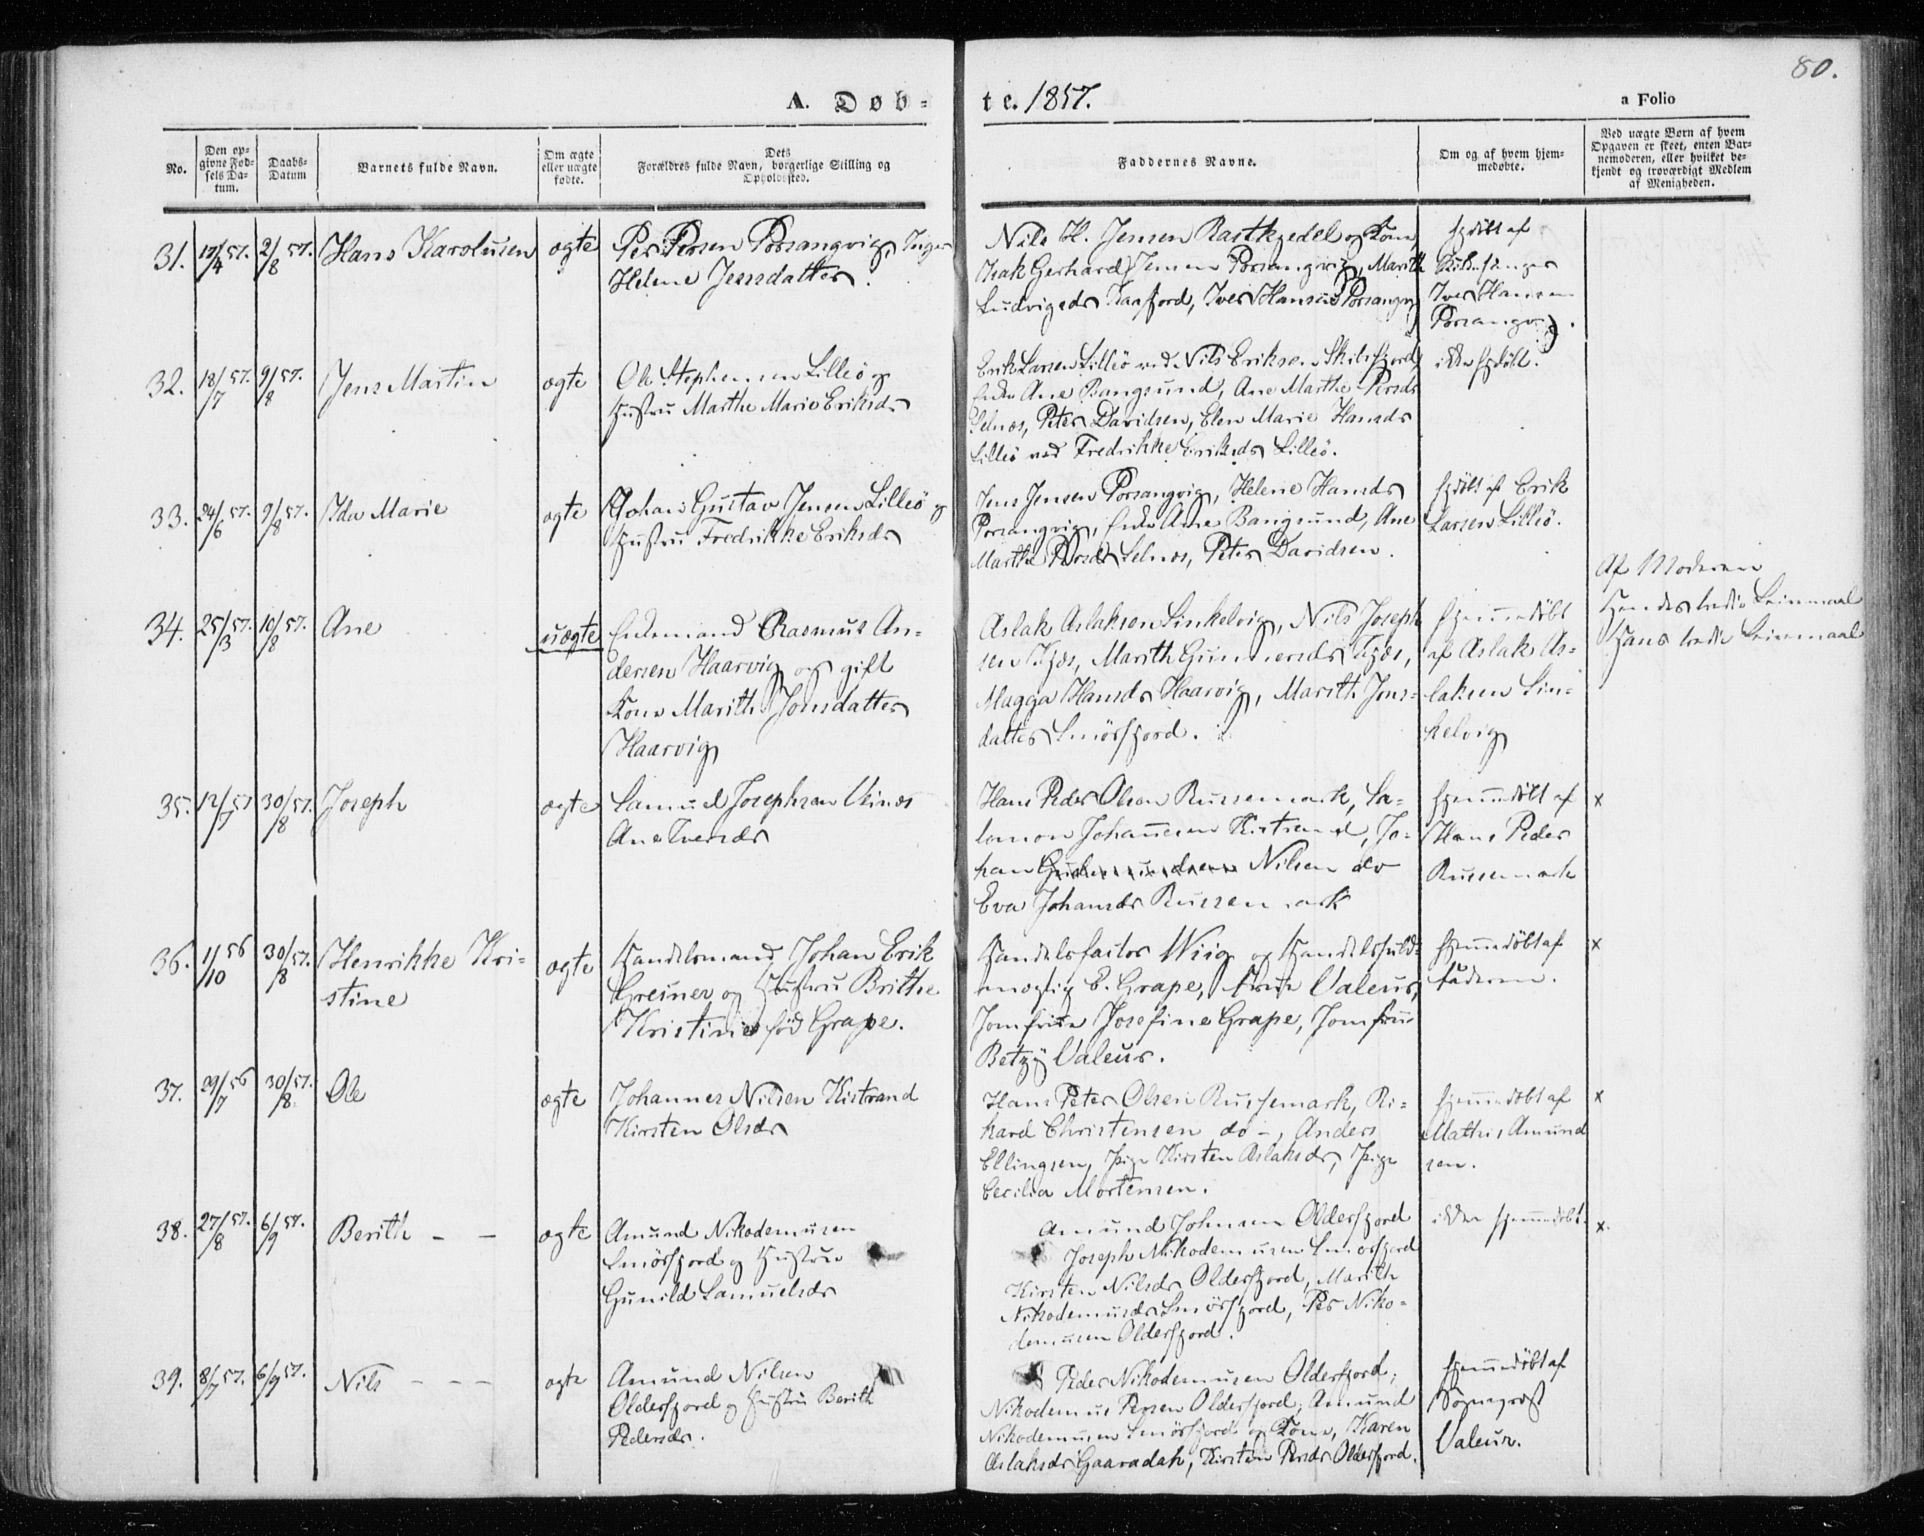 80.
A. Døb-
te. 1857.
a Folio
No.
Den op-
givne Fød-
sels Da-
tum.
Daabs-
Datum
Barnets fulde Navn.
Om ægte
eller uægte
fødte.
Dets
Forældres fulde Navn, borgerlige Stilling og
Opholdssted.
Faddernes Navne.
Om og af hvem hjem-
medøbte.
Ved uægte Børn af hvem
Opgaven er skeet, enten Bar-
nemoderen, eller hvilket be-
kjendt og troværdigt Medlem
af Menigheden.
31. 17/4 57. 2/8 57. Hans Karolusen ægte
Per Persen Porsangvig, Inger
Helene Jensdatter.
Nils H. Jensen Rastkjedel og Kone,
Isak Gerhard Jensen Porsangvig, Marith
Ludvigsdr Kaafjord, Iver Hansen Porsangvig
hjdøbt af
Kirkesanger
Iver Hansen
Porsangvig.
32. 18/7 57. 9/8 57. Jens Martin ægte
Ole Stephensen Lilleö og
Hustru Marthe Marie Eriksdr
Erik Larsen Lilleö ved Nils Eriksen Skilsfjord,
Enke Ane Bangsund, Ane Marthe Persdr
Selnæs, Peter Davidsen, Elen Marie Hansdr
Lilleö ved Fredrikke Eriksdr Lilleö.
ikke hjdøbt.
33. 24/6 57. 9/8 57. Ida Marie ægte
Johan Gustav Jensen Lilleö og
Hustru Fredrikke Eriksdr
Jens Jensen Porsangvig, Helene Hansdr
Porsangvig, Enke Ane Bangsund, Ane
Marthe Persdr Selnæs, Peter Davidsen.
hjdøbt af Erik
Larsen Lilleö.
34. 25/3 57. 10/8 57. Ane uægte
Enkemand Rasmus An-
dersen Haarvig og gift
Kone Marith Jonsdatter
Haarvig
Aslak Aslaksen Sinkelvig, Nils Joseph
sen Kjæs, Marith Gunnersdr Kjæs,
Magga Hansdr Haarvig, Marith Jons-
datter Smörfjord.
hjemmedøbt
af Aslak As-
laksen Sin-
kelvig
Af Moderen
Hendes tredie Leiermaal
Hans tredie Leiermaal
35. 12/7 57 30/8 57. Joseph ægte
Samuel Josephsen Veinæs
Ane Iversdr
Hans Peder Olsen Russemark, Sa-
lomon Johannesen Kistrand, Jo-
han Nilsen do
Eva Johansdr Russemark
hjemmedöbt af
Hans Peder
Russemark
x
36. 1/10 56 30/8 57. Henrikke Kri-
stine
ægte
Handelsmand Johan Erik
Greiner og Hustru Brithe
Kristine född Grape.
Handelsfactor Wiig og Handelsfuld-
mægtig E. Grape, Frue Valeur,
Jomfrue Josefine Grape, Jomfrue
Betzÿ Valeur.
hjemmedöbt af
faderen.
x
37. 29/7 56 30/8 57. Ole ægte
Johannes Nilsen Kistrand
Kirsten Olsdr
Hans Peter Olsen Russemark, Ri-
kard Christensen do -, Anders
Ellingsen, Pige Kirsten Aslaksdr, Pige
Cecilia Mortensen.
hjemmedöbt af
Mathis Amund
sen.
x
38. 27/8 57. 6/9 57. Berith - - ægte
Amund Nikodemusen
Smörfjord og Hustru
Gunild Samuelsdr
Amund Johnsen Olderfjord
Joseph Nikodemusen Smörfjord
Kirsten Nilsdr Olderfjord, Marith
Nikodemusdr Smörfjord, Per Niko-
demusen Olderfjord.
ikke hjemmedöbt.
x.
39. 8/7 57. 6/9 57. Nils - - - ægte
Amund Nilsen
Olderfjord og Hustru Berith
Pedersdr.
Peder Nikodemusen Olderfjord,
Nikodemus Persen Olderfjord, Amund
Nikodemusen Smörfjord og Kone, Karen
Aslaksdr Gaaradak, Kirsten Persdr Olderfjord.
hjemmedöbt af
Sogneprest
Valeur.